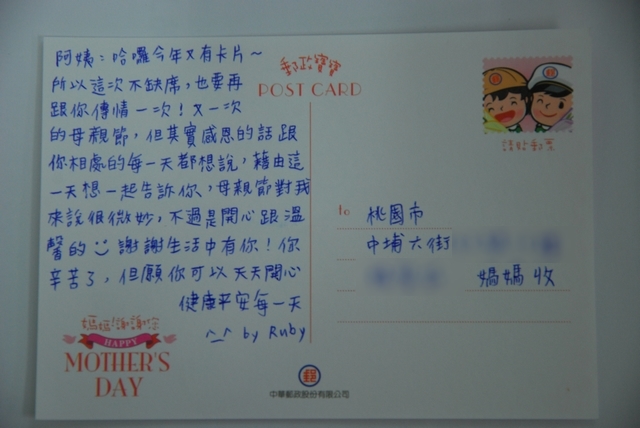 阿姨：哈囉今年又有卡片～
所以這次不缺席，也要再
跟你傳情一次！又一次
的母親節，但其實感恩的話跟
你相處的每一天都想說，藉由這
一天想一起告訴你、母親節對我
來說很微妙，不過是開心跟溫
馨的 謝謝生活中有你！你
辛苦了，但願你可以天天開心
健康平安每一天
^_^ by Ruby
郵政寶寶
POST CARD
請貼郵票
to 桃園市
中埔六街
媽媽 收
媽媽！謝謝您
HAPPY
MOTHER'S
DAY
郵
中華郵政股份有限公司